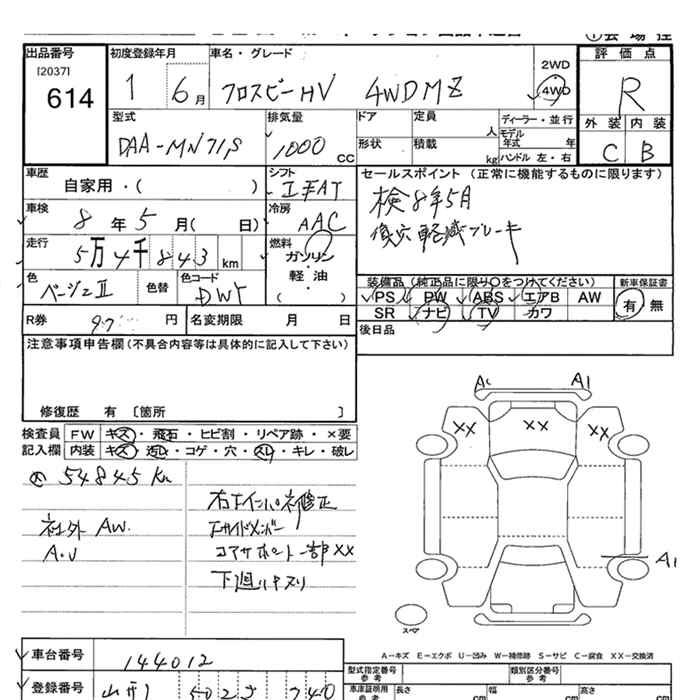 出品番号
[2037]
614
初度登録年月
1 6月
車名・グレード
クロスビーHV 4WDMZ
2WD
4WD
評価点
R
外装 内装
C B
型式
DAA-MN71S
排気量
1000 CC
ドア
形状
定員 人
積載 kg
ディーラー・並行
モデル年式 年
ハンドル 左・右
車歴
自家用・( )
シフト
AAC
冷房
車検
8年5月( 日)
走行
5万4千843 km
燃料
ガソリン
軽・油
( )
色
ベージュII
色替
色コード
DW1
セールスポイント(正常に機能するものに限ります)
検8年5月
衝突軽減ブレーキ
装備品(純正品に限り○をつけてください)
PS PW ABS エアB AW
SR ナビ TV カワ
新車保証書
有 無
後日品
R券 円
名変期限 月 日
注意事項申告欄(不具合内容等は具体的に記入して下さい)
修復歴 有 〔箇所 〕
検査員 FW キズ・飛石・ヒビ割・リペア跡・×要
記入欄 内装 キズ・汚レ・コゲ・穴・スレ・キレ・破レ
54845Km
社外 AW.
右インパネ補修正
サイドメンバー
コアサポート一部XX
下廻りキズリ
A1
XX
XX
XX
A1
スペア
A-キズ E-エクボ U-凹み W-補修跡 S-サビ C-腐食 XX-交換済
車台番号
144012
登録番号
型式指定番号
参考
類別区分番号
参考
車庫証明用
参考
長さ cm
幅 cm
高さ cm